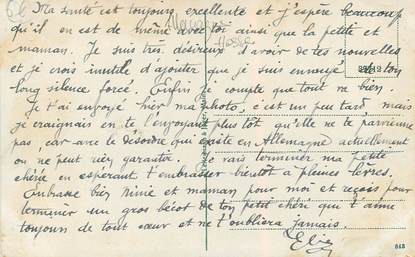 Ma santé est toujours excellente et j'espère beaucoup
qu'il en est de même avec toi ainsi que la petite et
maman. Je suis très désireux d'avoir de tes nouvelles
et je crois inutile d'ajouter que je suis ennuyé de ton
long silence forcé. Enfin je compte que tout va bien.
Je t'ai envoyé hier ma photo, c'est un peu tard mais
je craignais en te l'envoyant plus tôt qu'elle ne te parvienne
pas, car avec le désordre qui existe en Allemagne actuellement
on ne peut rien garantir. Je vais terminer ma petite
chérie en esperant t'embrasser bientôt à pleines lèvres.
Embrasse bien Ninie et maman pour moi et reçois pour
terminer un gros bécot de ton petit chéri qui t'aime
toujours de tout cœur et ne t'oubliera jamais.
848